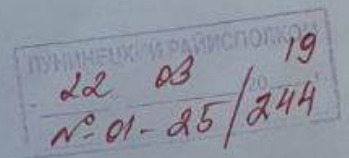 ЛУНИНЕЦКИЙ РАЙИСПОЛКОМ
22 03 2019
№ 01-25/244